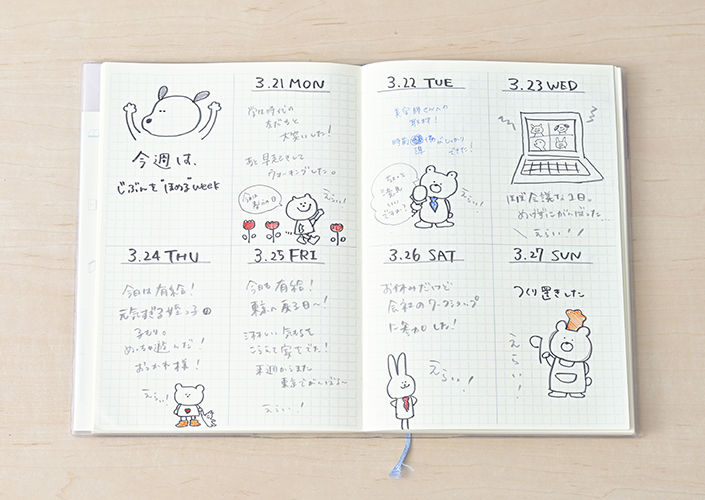 今週は、
じぶんを"ほめる"week
3.21 MON
学生時代の
友だちと
大笑いした!
あと早起きして
ウォーキングした。
今日は
春分の日
えらい!
3.22 TUE
取材!
時間
できた!
えらい!
3.23 WED
ほぼ会議な1日。
めげずにがんばった…
えらい!!
3.24 THU
今日は有給!
元気すぎる姪っ子の
子もり。
めっちゃ遊んだ!
おつかれ様!
えらい!
3.25 FRI
今日も有給!
東京へ戻る日〜!
さみしい気もちを
こらえて家をでた!
来週からまた
東京でがんばる〜
えらい!
3.26 SAT
お休みだけど
会社のワークショップ
に参加した!
えらい!
3.27 SUN
つくり置きした
えらい!